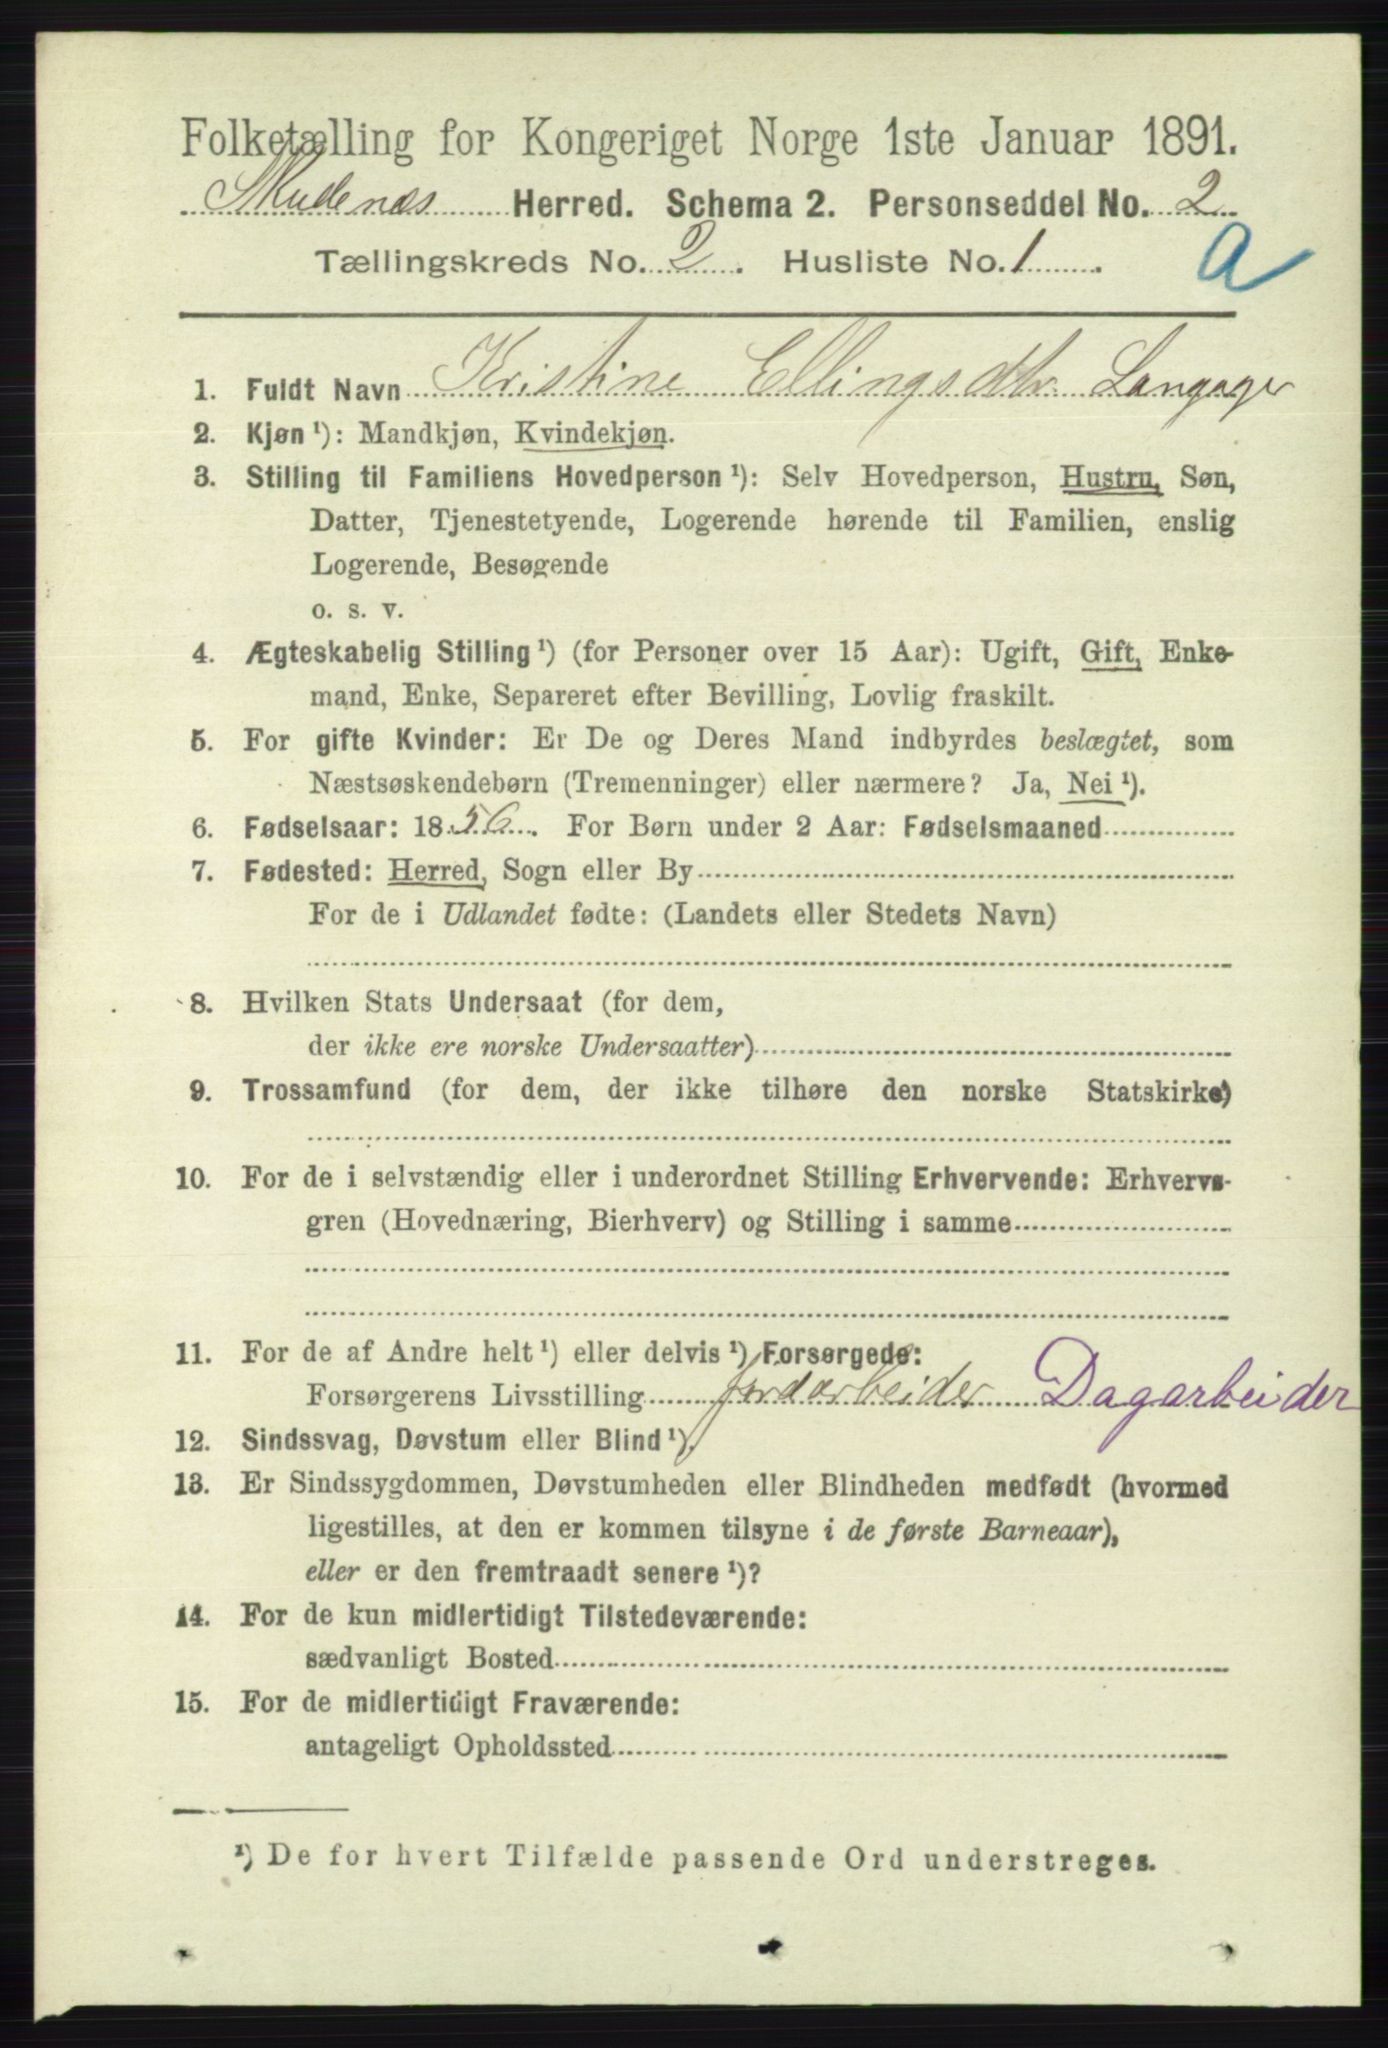 Folketælling for Kongeriget Norge 1ste Januar 1891.
Skudenæs Herred. Schema 2. Personseddel No. 2
Tællingskreds No. 2. Husliste No. 1. a
1. Fuldt Navn Kristine Ellingsdtr. Langager
2. Kjøn ¹): Mandkjøn, Kvindekjøn.
3. Stilling til Familiens Hovedperson ¹): Selv Hovedperson, Hustru, Søn,
Datter, Tjenestetyende, Logerende hørende til Familien, enslig
Logerende, Besøgende
o. s. v.
4. Ægteskabelig Stilling ¹) (for Personer over 15 Aar): Ugift, Gift, Enke-
mand, Enke, Separeret efter Bevilling, Lovlig fraskilt.
5. For gifte Kvinder: Er De og Deres Mand indbyrdes beslægtet, som
Næstsøskendebørn (Tremenninger) eller nærmere? Ja, Nei ¹).
6. Fødselsaar: 1856. For Børn under 2 Aar: Fødselsmaaned
7. Fødested: Herred, Sogn eller By
For de i Udlandet fødte: (Landets eller Stedets Navn)
8. Hvilken Stats Undersaat (for dem,
der ikke ere norske Undersaatter)
9. Trossamfund (for dem, der ikke tilhøre den norske Statskirke)
10. For de i selvstændig eller i underordnet Stilling Erhvervende: Erhvervs-
gren (Hovednæring, Bierhverv) og Stilling i samme
11. For de af Andre helt ¹) eller delvis ¹) Forsørgede:
Forsørgerens Livsstilling Jordarbeider Dagarbeider
12. Sindssvag, Døvstum eller Blind ¹).
13. Er Sindssygdommen, Døvstumheden eller Blindheden medfødt (hvormed
ligestilles, at den er kommen tilsyne i de første Barneaar),
eller er den fremtraadt senere ¹)?
14. For de kun midlertidigt Tilstedeværende:
sædvanligt Bosted
15. For de midlertidigt Fraværende:
antageligt Opholdssted
¹) De for hvert Tilfælde passende Ord understreges.